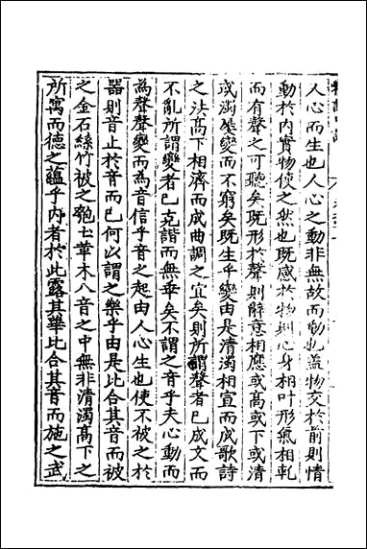 人心而生也人心之動非無故而動也盖物交於前則情
動於内實物使之然也既感於物則心身相叶形氣相軋
而有聲之可聽矣既形於聲則辭意相應或髙或下或清
或濁變而不窮矣既生乎變由是清濁相宣而成歌詩
之法髙下相濟而成曲調之宜矣則所謂聲者巳成文而
不亂所謂變者巳克諧而無乖矣不謂之音乎夫心動而
為聲聲變而為音信乎音之起由人心生也使不被之於
器則音止於音而巳何以謂之樂乎由是比合其音而被
之金石絲竹被之匏土革木八音之中無非清濁髙下之
所寓而德之藴乎内者於此露其華比合其音而施之武